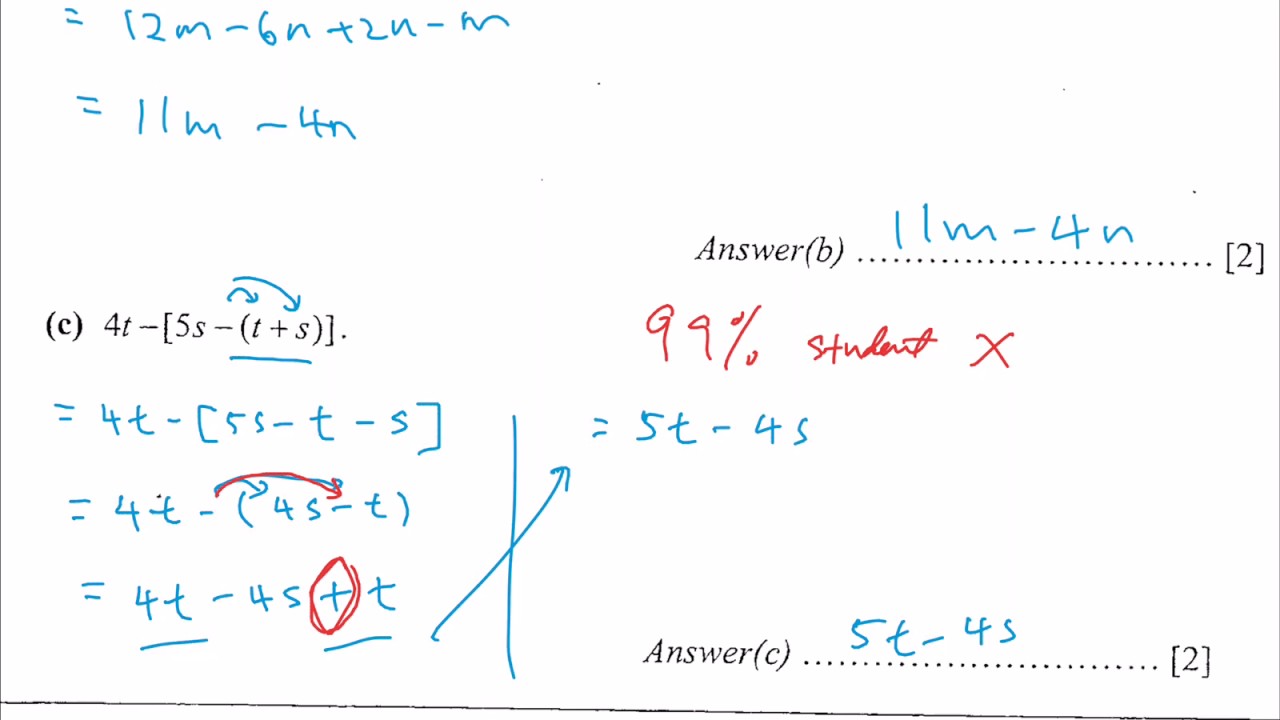 = 12m - 6n + 2n - m
= 11m - 4n
Answer(b) 11m - 4n [2]
(c) 4t - [5s - (t + s)].
99% student X
= 4t - [5s - t - s]
= 5t - 4s
= 4t - (4s - t)
= 4t - 4s + t
Answer(c) 5t - 4s [2]